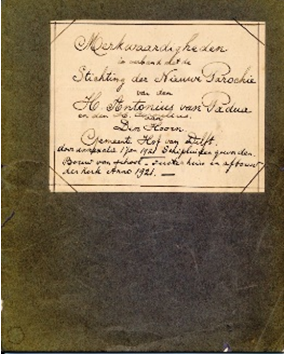 Merkwaardigheden
in verband met de
Stichting der Nieuwe Parochie
van den
H. Antonius van Padua
en den H.
aan
Den Hoorn.
Gemeente Hof van Delft.
door annexatie 1921 Schipluiden geworden.
Bouw van school - zusterhuis en afbouw
der kerk Anno 1921. —